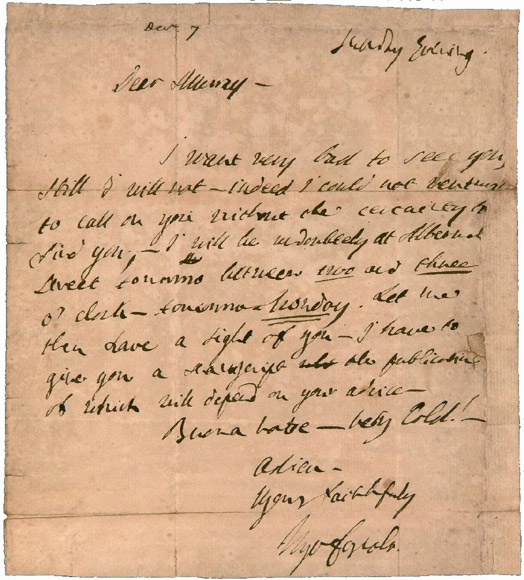 Dec 7
Sunday Evening.
Dear Murray —
I want very bad to see you,
still I will not — indeed I could not venture
to call on you without the certainty to
find you, — I will be undoubtedly at Albemarle
Street tomorrow between two and three
o' clock — tomorrow — Monday. Let me
then have a sight of you — I have to
give you a manuscript the publication
of which will depend on your advice —
Buona notte — very Cold! —
Adieu —
Yours faithfully
Ugo Foscolo.